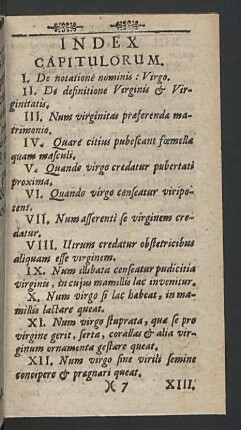 INDEX
CAPITULORUM.
I. De notatione nominis: Virgo.
II. De definitione Virginis & Vir-
ginitatis.
III. Num virginitas præferenda ma-
trimonio.
IV. Quare citius pubescant fœmellæ
quam masculi.
V. Quando virgo credatur pubertati
proxima.
VI. Quando virgo censeatur viripo-
tens.
VII. Num asserenti se virginem cre-
datur.
VIII. Utrum credatur obstetricibus
aliquam esse virginem.
IX. Num illibata censeatur pudicitia
virginis, in cujus mamillis lac invenitur.
X. Num virgo si lac habeat, in ma-
millis lactare queat.
XI. Num virgo stuprata, quæ se pro
virgine gerit, serta, corallas & alia vir-
ginum ornamenta gestare queat.
XII. Num virgo sine virili semine
concipere & prægnari queat.
)( 7 XIII.